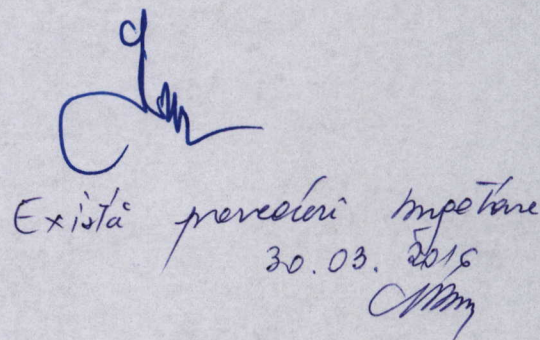 Există prevederi bugetare
30.03.2016